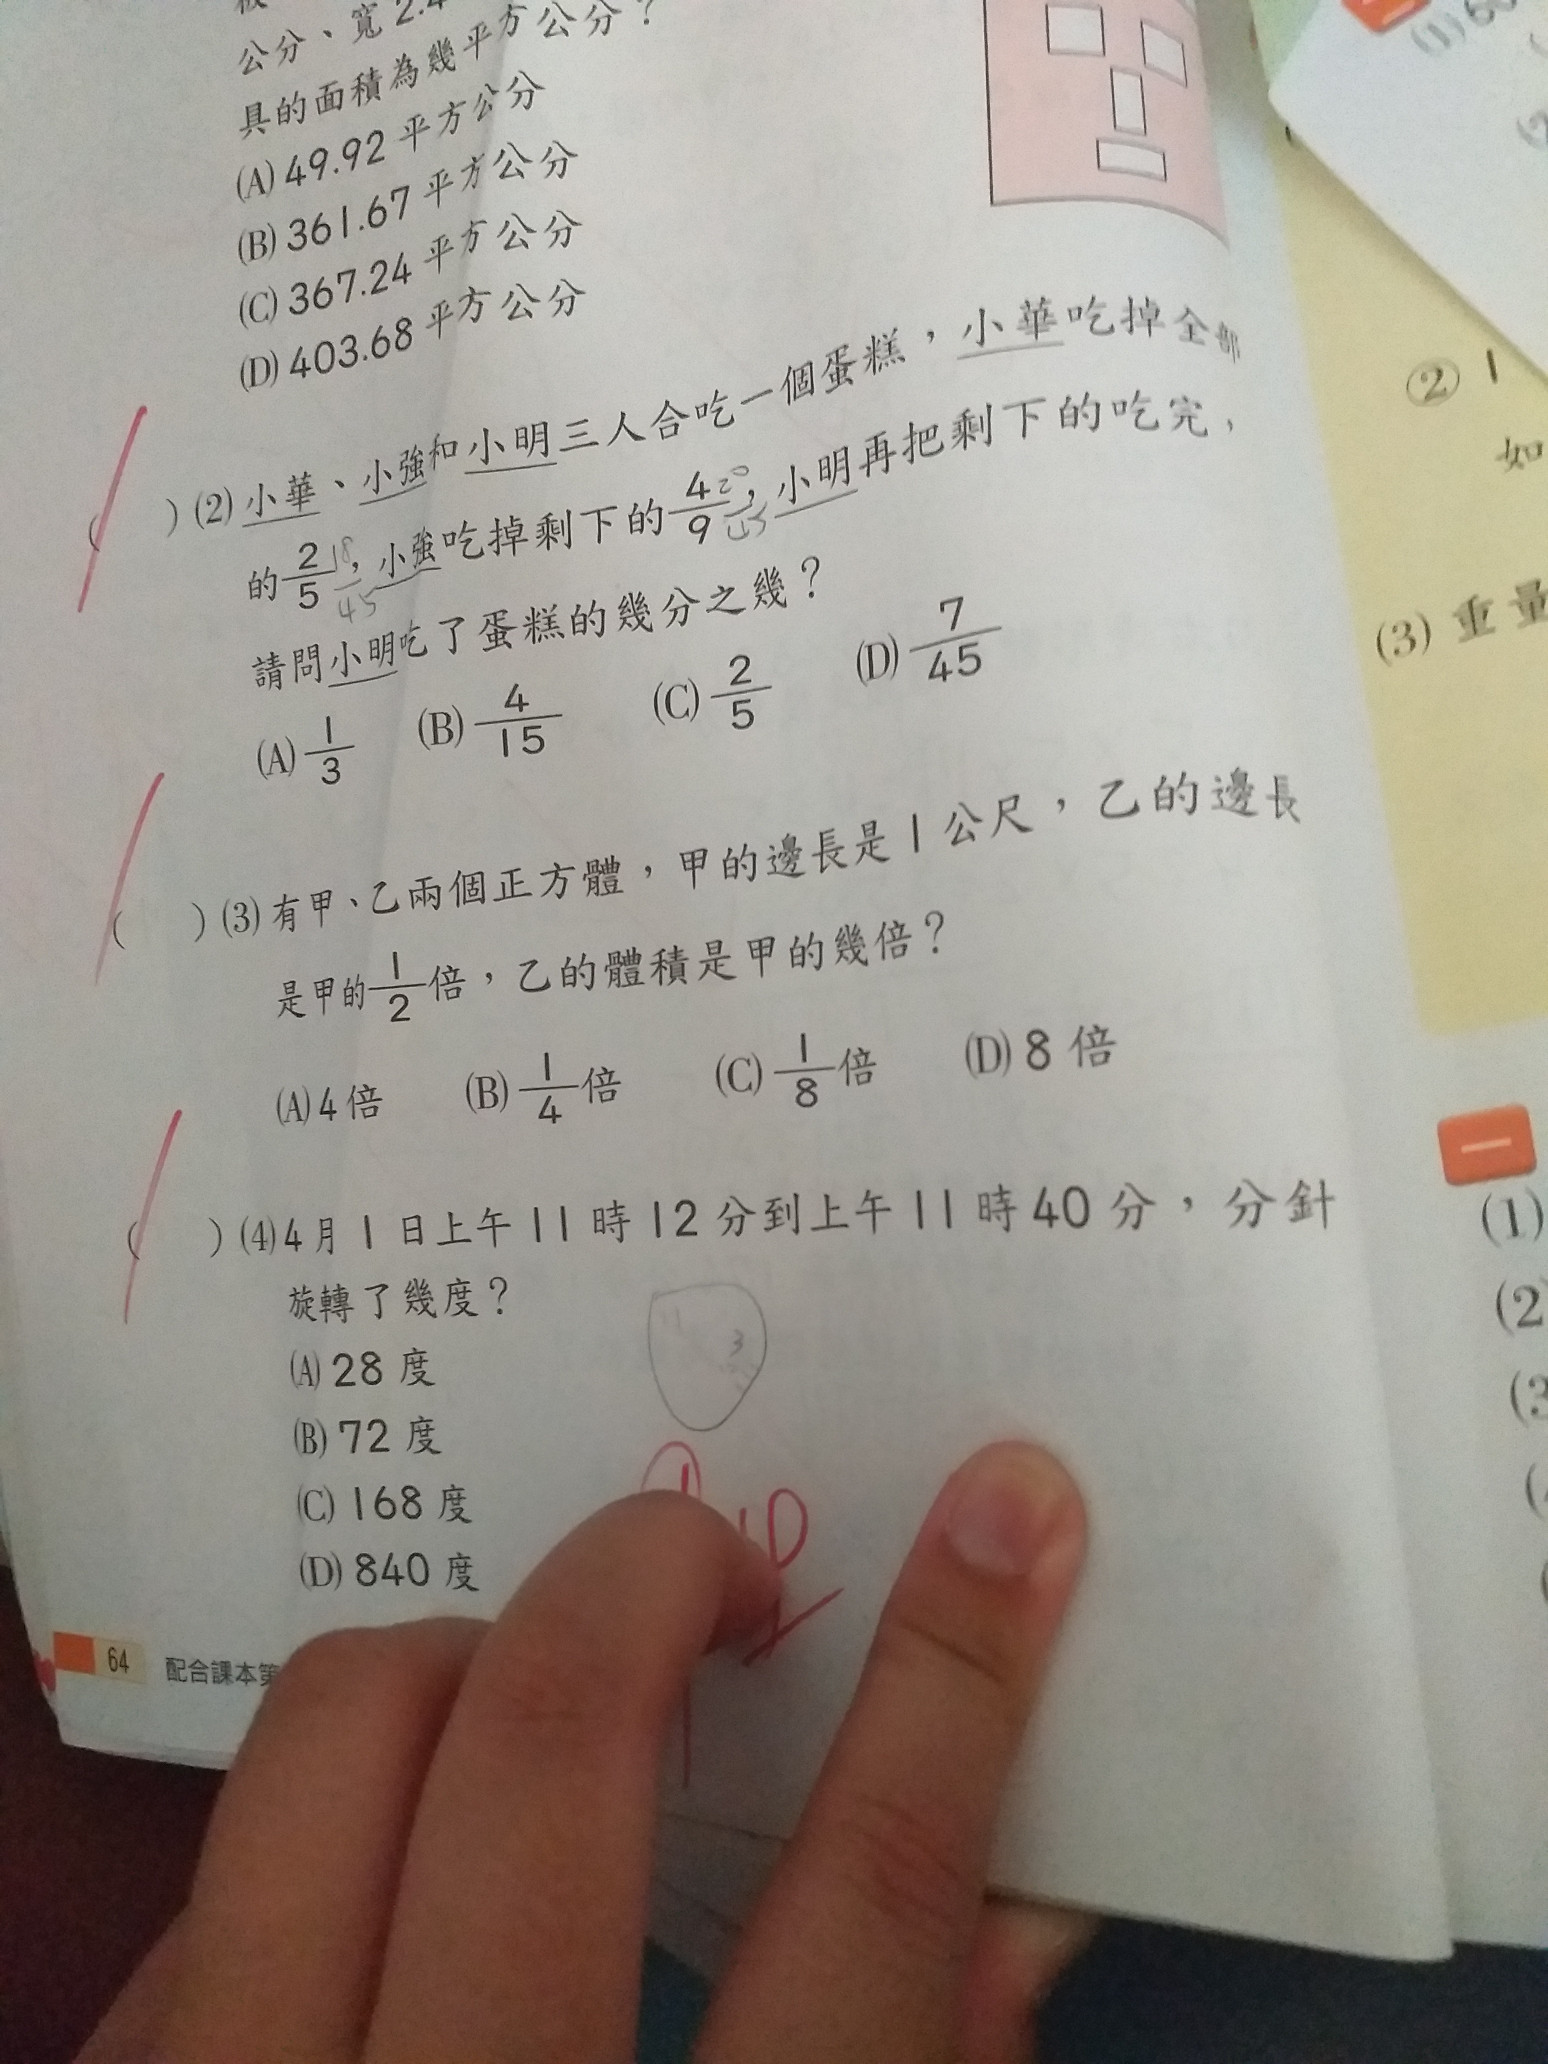 公分、寬 2.4
具的面積為幾平方公分？
(A) 49.92 平方公分
(B) 361.67 平方公分
(C) 367.24 平方公分
(D) 403.68 平方公分
( ) (2) 小華、小強和小明三人合吃一個蛋糕，小華吃掉全部
的 2/5 18/45，小強吃掉剩下的 4/9 20/45，小明再把剩下的吃完，
請問小明吃了蛋糕的幾分之幾？
(A) 1/3 (B) 4/15 (C) 2/5 (D) 7/45
( ) (3) 有甲、乙兩個正方體，甲的邊長是 1 公尺，乙的邊長
是甲的 1/2 倍，乙的體積是甲的幾倍？
(A) 4 倍 (B) 1/4 倍 (C) 1/8 倍 (D) 8 倍
( ) (4) 4 月 1 日上午 11 時 12 分到上午 11 時 40 分，分針
旋轉了幾度？
3
(A) 28 度
(B) 72 度
(C) 168 度
(D) 840 度
64 配合課本第
(1)
② 1
如
(3) 重量
一
(1)
(2)
(3